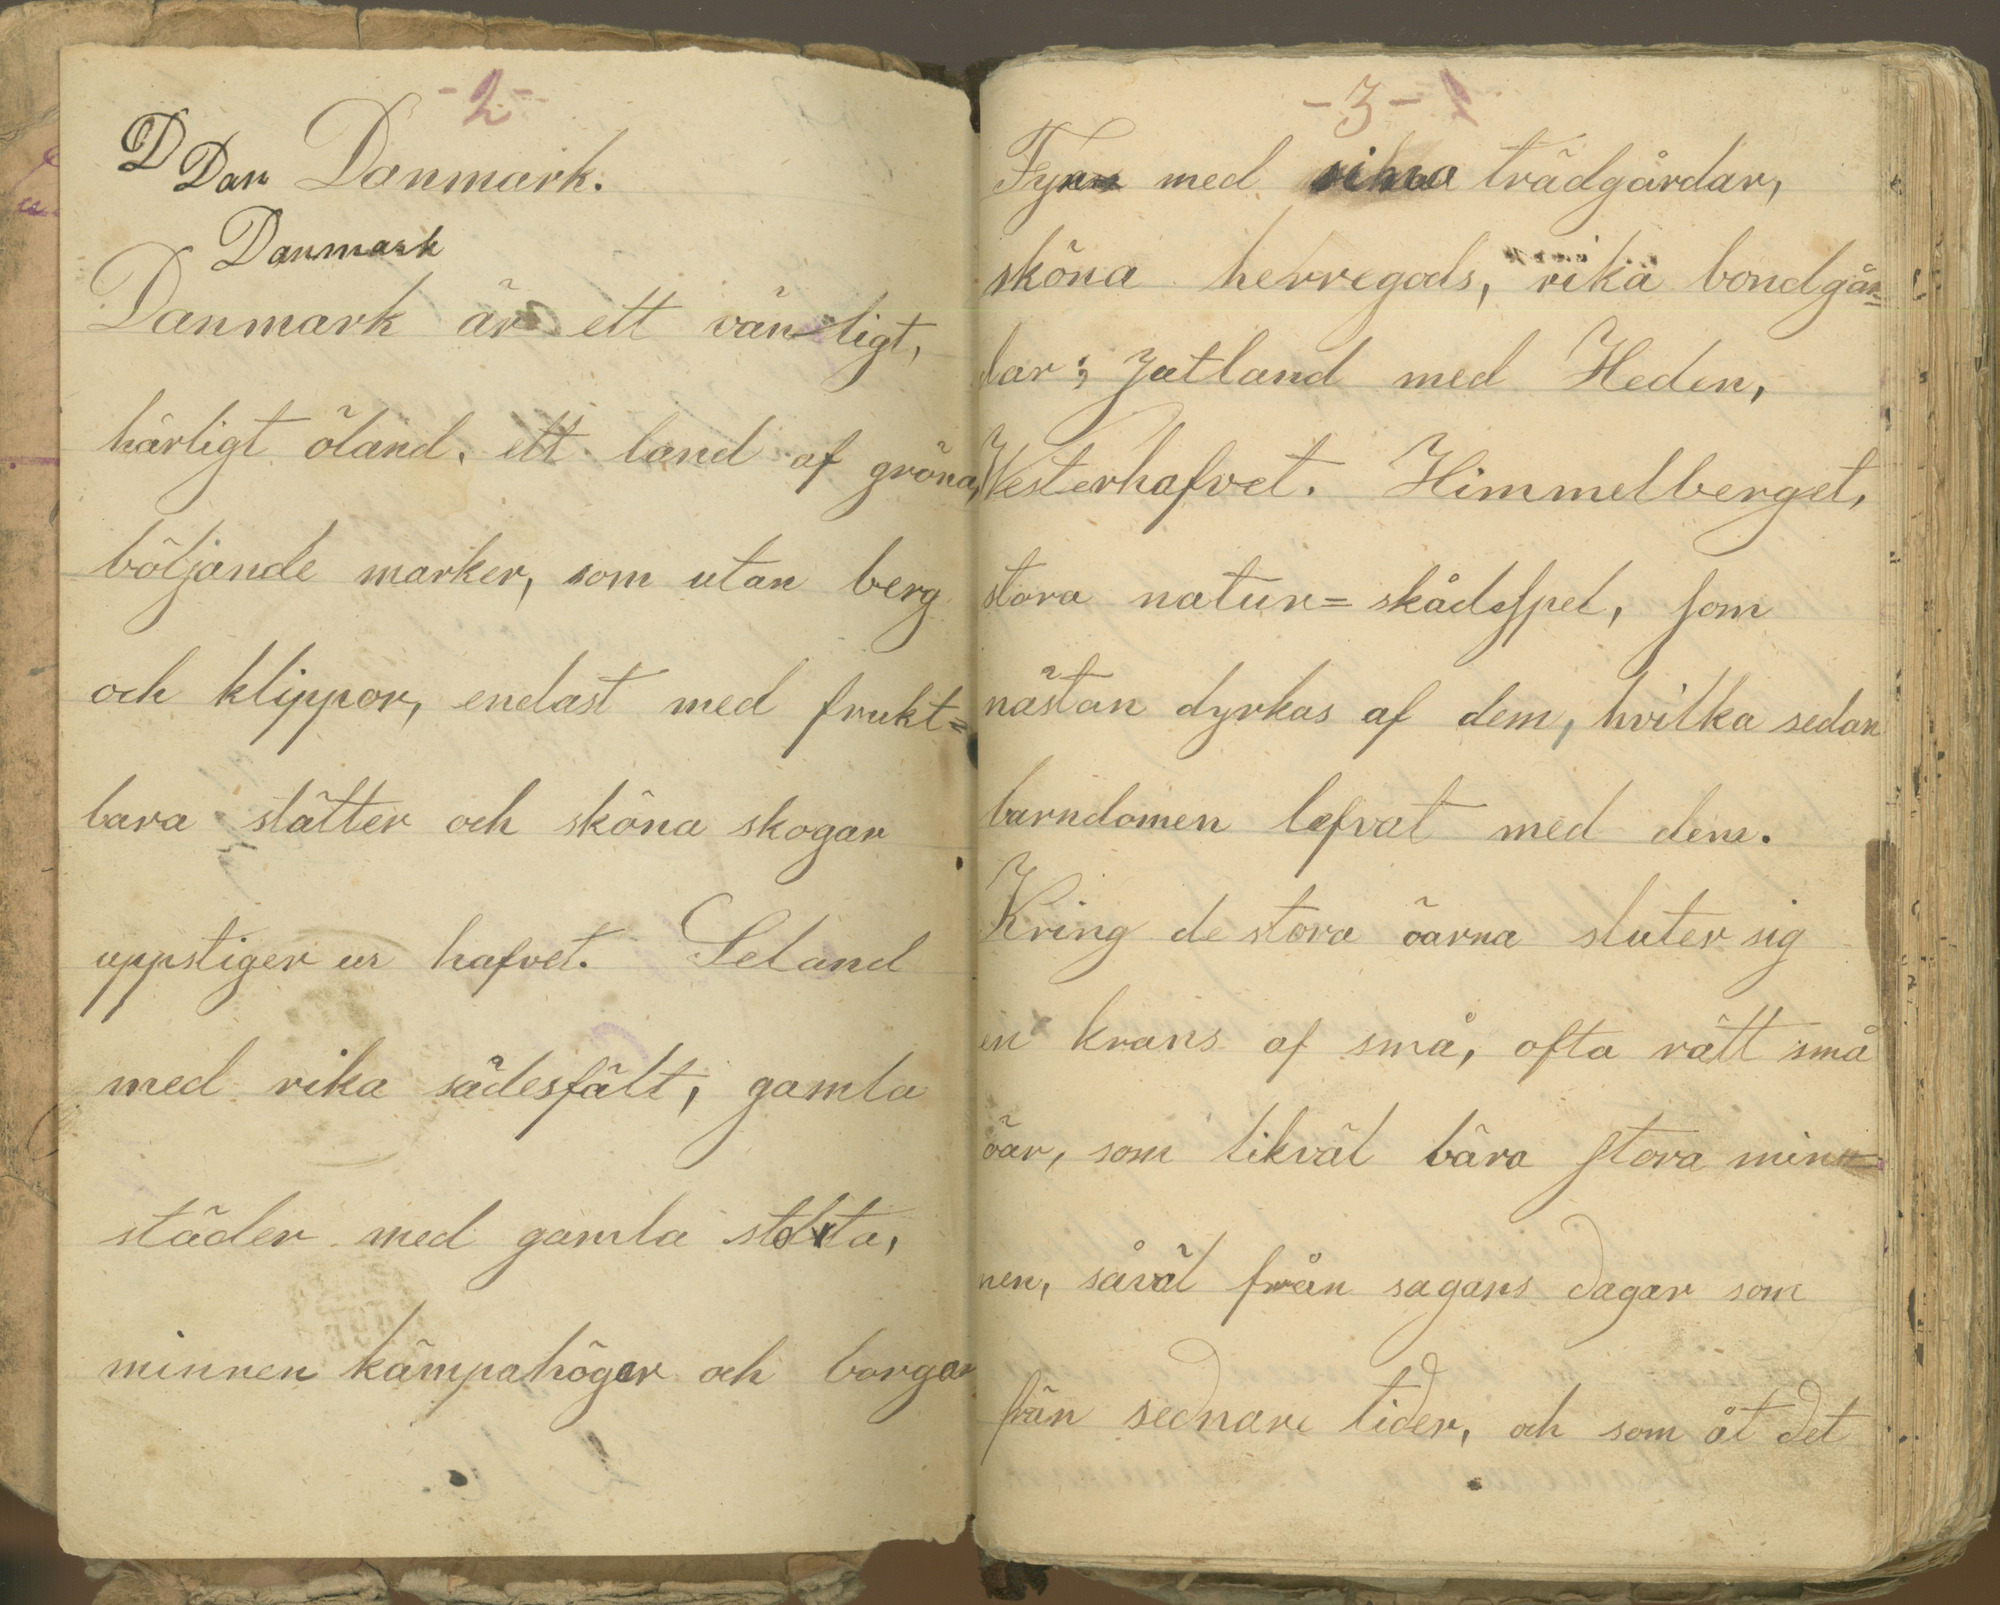 -2-
D Dan Danmark.
Danmark
Danmark är ett vänligt,
härligt öland, ett land af gröna,
böljande marker, som utan berg
och klippor, endast med frukt=
bara slätter och sköna skogar
uppstiger ur hafvet. Seland
med rika sädesfält, gamla
städer med gamla stolta,
minnen kämpahögar och borgar
-3-
Fyen med sina trädgårdar,
sköna herregods, rika bondgår=
dar; Jutland med Heden,
Westerhafvet. Himmelberget,
stora natur=skådespel, som
nästan dyrkas af dem, hvilka sedan
barndomen lefvat med dem.
Kring de stora öarna sluter sig
en krans af små, ofta rätt små
öar, som likväl bära stora min=
nen, såväl från sagans dagar som
från sednare tider, och som åt det